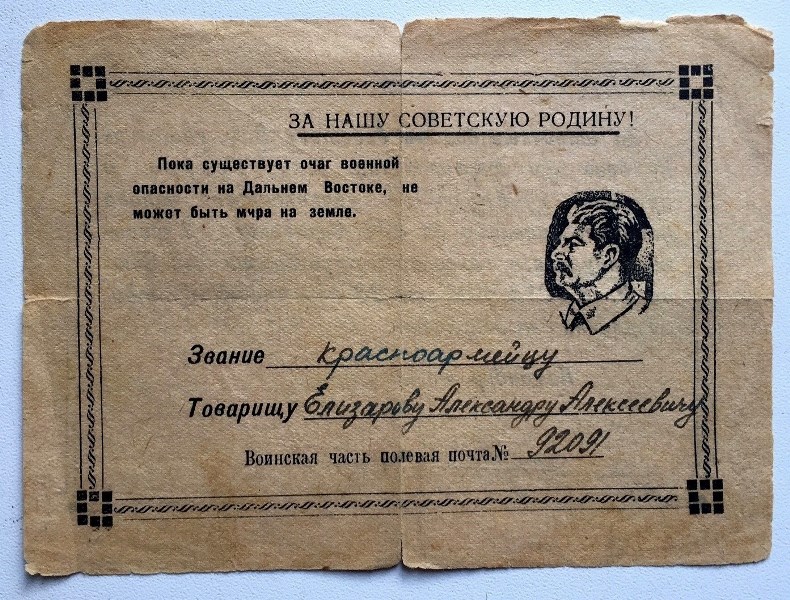 ЗА НАШУ СОВЕТСКУЮ РОДИНУ!
Пока существует очаг военной
опасности на Дальнем Востоке, не
может быть мчра на земле.
Звание красноармейцу
Товарищу Елизарову Александру Алексеевичу
Воинская часть полевая почта № 92091